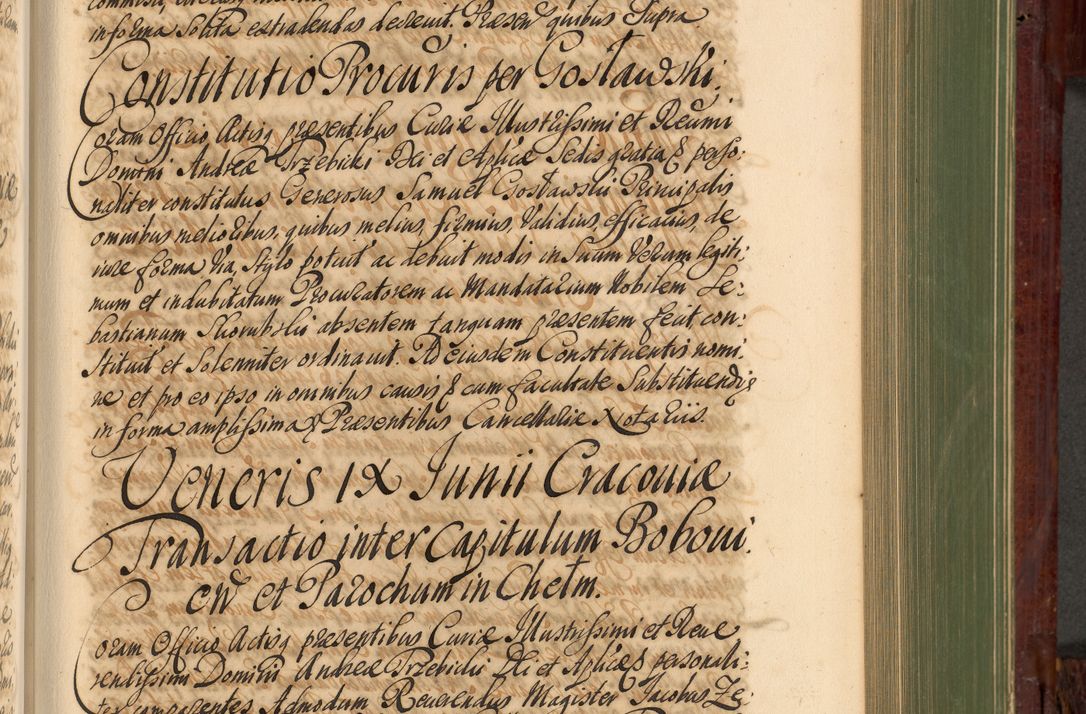 in forma solita extradendas decreuit. Præsen̄ quibus Supra
Constitutio Procuris per Gosławski.
Coram Officio Actisq præsentibus Curiæ Illustrissimi et Reūmi
Domini Andreæ Trzebicki Dei et Aplicæ Sedis gratia & perso:
naliter constitutus Generosus Samuel Gosławski Principalis
omnibus melioribus, quibus melius, firmius, Validius, efficacius, de
iure forma Via, stylo potuit ac debuit modis in suum Verum legiti:
mum et indubitatum Procuratorem ac Mandatarium Nobilem Se:
bastianum Skorubski absentem tanquam præsentem fecit, con:
stituit et Solenniter ordinauit. Ad eiusdem Constituentis nomi:
ne et pro eo ipso in omnibus causis & cum facultate Substituendi &
in forma amplissima & Præsentibus Cancellariæ Notariis.
Veneris IX Junii Cracouiæ
Transactio inter Capitulum Boboui:
cen̄ et Parochum in Chełm.
Coram Officio Actisq præsentibus Curiæ Illustrissimi et Reue
rendissimi Domini Andreæ Trzebicki Dei et Aplicæ & personali:
ter comparentes Admodum Reuerendus Magister Jacobus Ze: